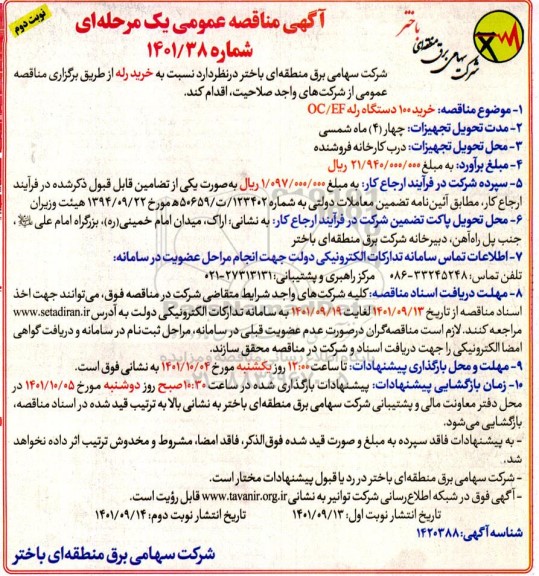 نوبت دوم
باختر
شرکت سهامی برق منطقه‌ای
آگهی مناقصه عمومی یک مرحله‌ای
شماره ۱۴۰۱/۳۸
شرکت سهامی برق منطقه‌ای باختر درنظردارد نسبت به خرید رله از طریق برگزاری مناقصه
عمومی از شرکت‌های واجد صلاحیت، اقدام کند.
۱- موضوع مناقصه: خرید ۱۰۰ دستگاه رله OC/EF
۲- مدت تحویل تجهیزات: چهار (۴) ماه شمسی
۳- محل تحویل تجهیزات: درب کارخانه فروشنده
۴- مبلغ برآورد: به مبلغ ۲۱/۹۴۰/۰۰۰/۰۰۰ ریال
۵- سپرده شرکت در فرآیند ارجاع کار: به مبلغ ۱/۰۹۷/۰۰۰/۰۰۰ ریال به‌صورت یکی از تضامین قابل قبول ذکرشده در فرآیند
ارجاع کار، مطابق آئین‌نامه تضمین معاملات دولتی به شماره ۱۲۳۴۰۲/ت۵۰۶۵۹ه مورخ ۱۳۹۴/۰۹/۲۲ هیئت وزیران
۶- محل تحویل پاکت تضمین شرکت در فرآیند ارجاع کار: به نشانی: اراک، میدان امام خمینی(ره)، بزرگراه امام علی
جنب پل راه‌آهن، دبیرخانه شرکت برق منطقه‌ای باختر
۷- اطلاعات تماس سامانه تدارکات الکترونیکی دولت جهت انجام مراحل عضویت در سامانه:
تلفن تماس: ۳۳۲۴۵۲۴۸-۰۸۶ مرکز راهبری و پشتیبانی: ۲۷۳۱۳۱۳۱-۰۲۱
۸- مهلت دریافت اسناد مناقصه: کلیه شرکت‌های واجد شرایط متقاضی شرکت در مناقصه فوق، می‌توانند جهت اخذ
اسناد مناقصه از تاریخ ۱۴۰۱/۰۹/۱۳ لغایت ۱۴۰۱/۰۹/۱۹ به سامانه تدارکات الکترونیکی دولت به آدرس www.setadiran.ir
مراجعه کنند. لازم است مناقصه‌گران درصورت عدم عضویت قبلی در سامانه، مراحل ثبت‌نام در سامانه و دریافت گواهی
امضا الکترونیکی را جهت دریافت اسناد و شرکت در مناقصه محقق سازند.
۹- مهلت و محل بارگذاری پیشنهادات: تا ساعت ۱۲:۰۰ روز یکشنبه مورخ ۱۴۰۱/۱۰/۰۴ به نشانی فوق است.
۱۰- زمان بازگشایی پیشنهادات: پیشنهادات بارگذاری شده در ساعت ۱۰:۳۰ صبح روز دوشنبه مورخ ۱۴۰۱/۱۰/۰۵ در
محل دفتر معاونت مالی و پشتیبانی شرکت سهامی برق منطقه‌ای باختر به نشانی بالا به ترتیب قید شده در اسناد مناقصه،
بازگشایی می‌شود.
- به پیشنهادات فاقد سپرده به مبلغ و صورت قید شده فوق‌الذکر، فاقد امضا، مشروط و مخدوش ترتیب اثر داده نخواهد
شد.
- شرکت سهامی برق منطقه‌ای باختر در رد یا قبول پیشنهادات مختار است.
- آگهی فوق در شبکه اطلاع‌رسانی شرکت توانیر به نشانی www.tavanir.org.ir قابل رؤیت است.
تاریخ انتشار نوبت اول: ۱۴۰۱/۰۹/۱۳ تاریخ انتشار نوبت دوم: ۱۴۰۱/۰۹/۱۴
شناسه آگهی: ۱۴۲۰۳۸۸
شرکت سهامی برق منطقه‌ای باختر